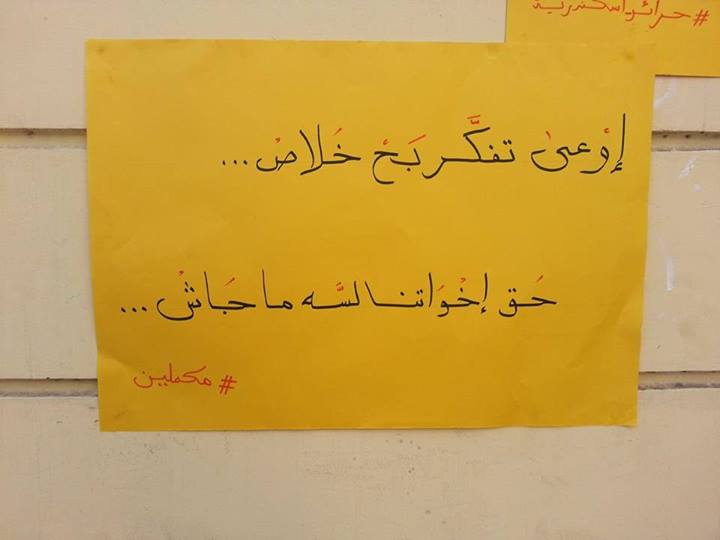 #حرائر_اسكندرية
إوْعىٰ تفكَّر بَحْ خَلاصْ...
حَق إخْوَاتنا لسَّه ما جَاشْ...
#مكملين